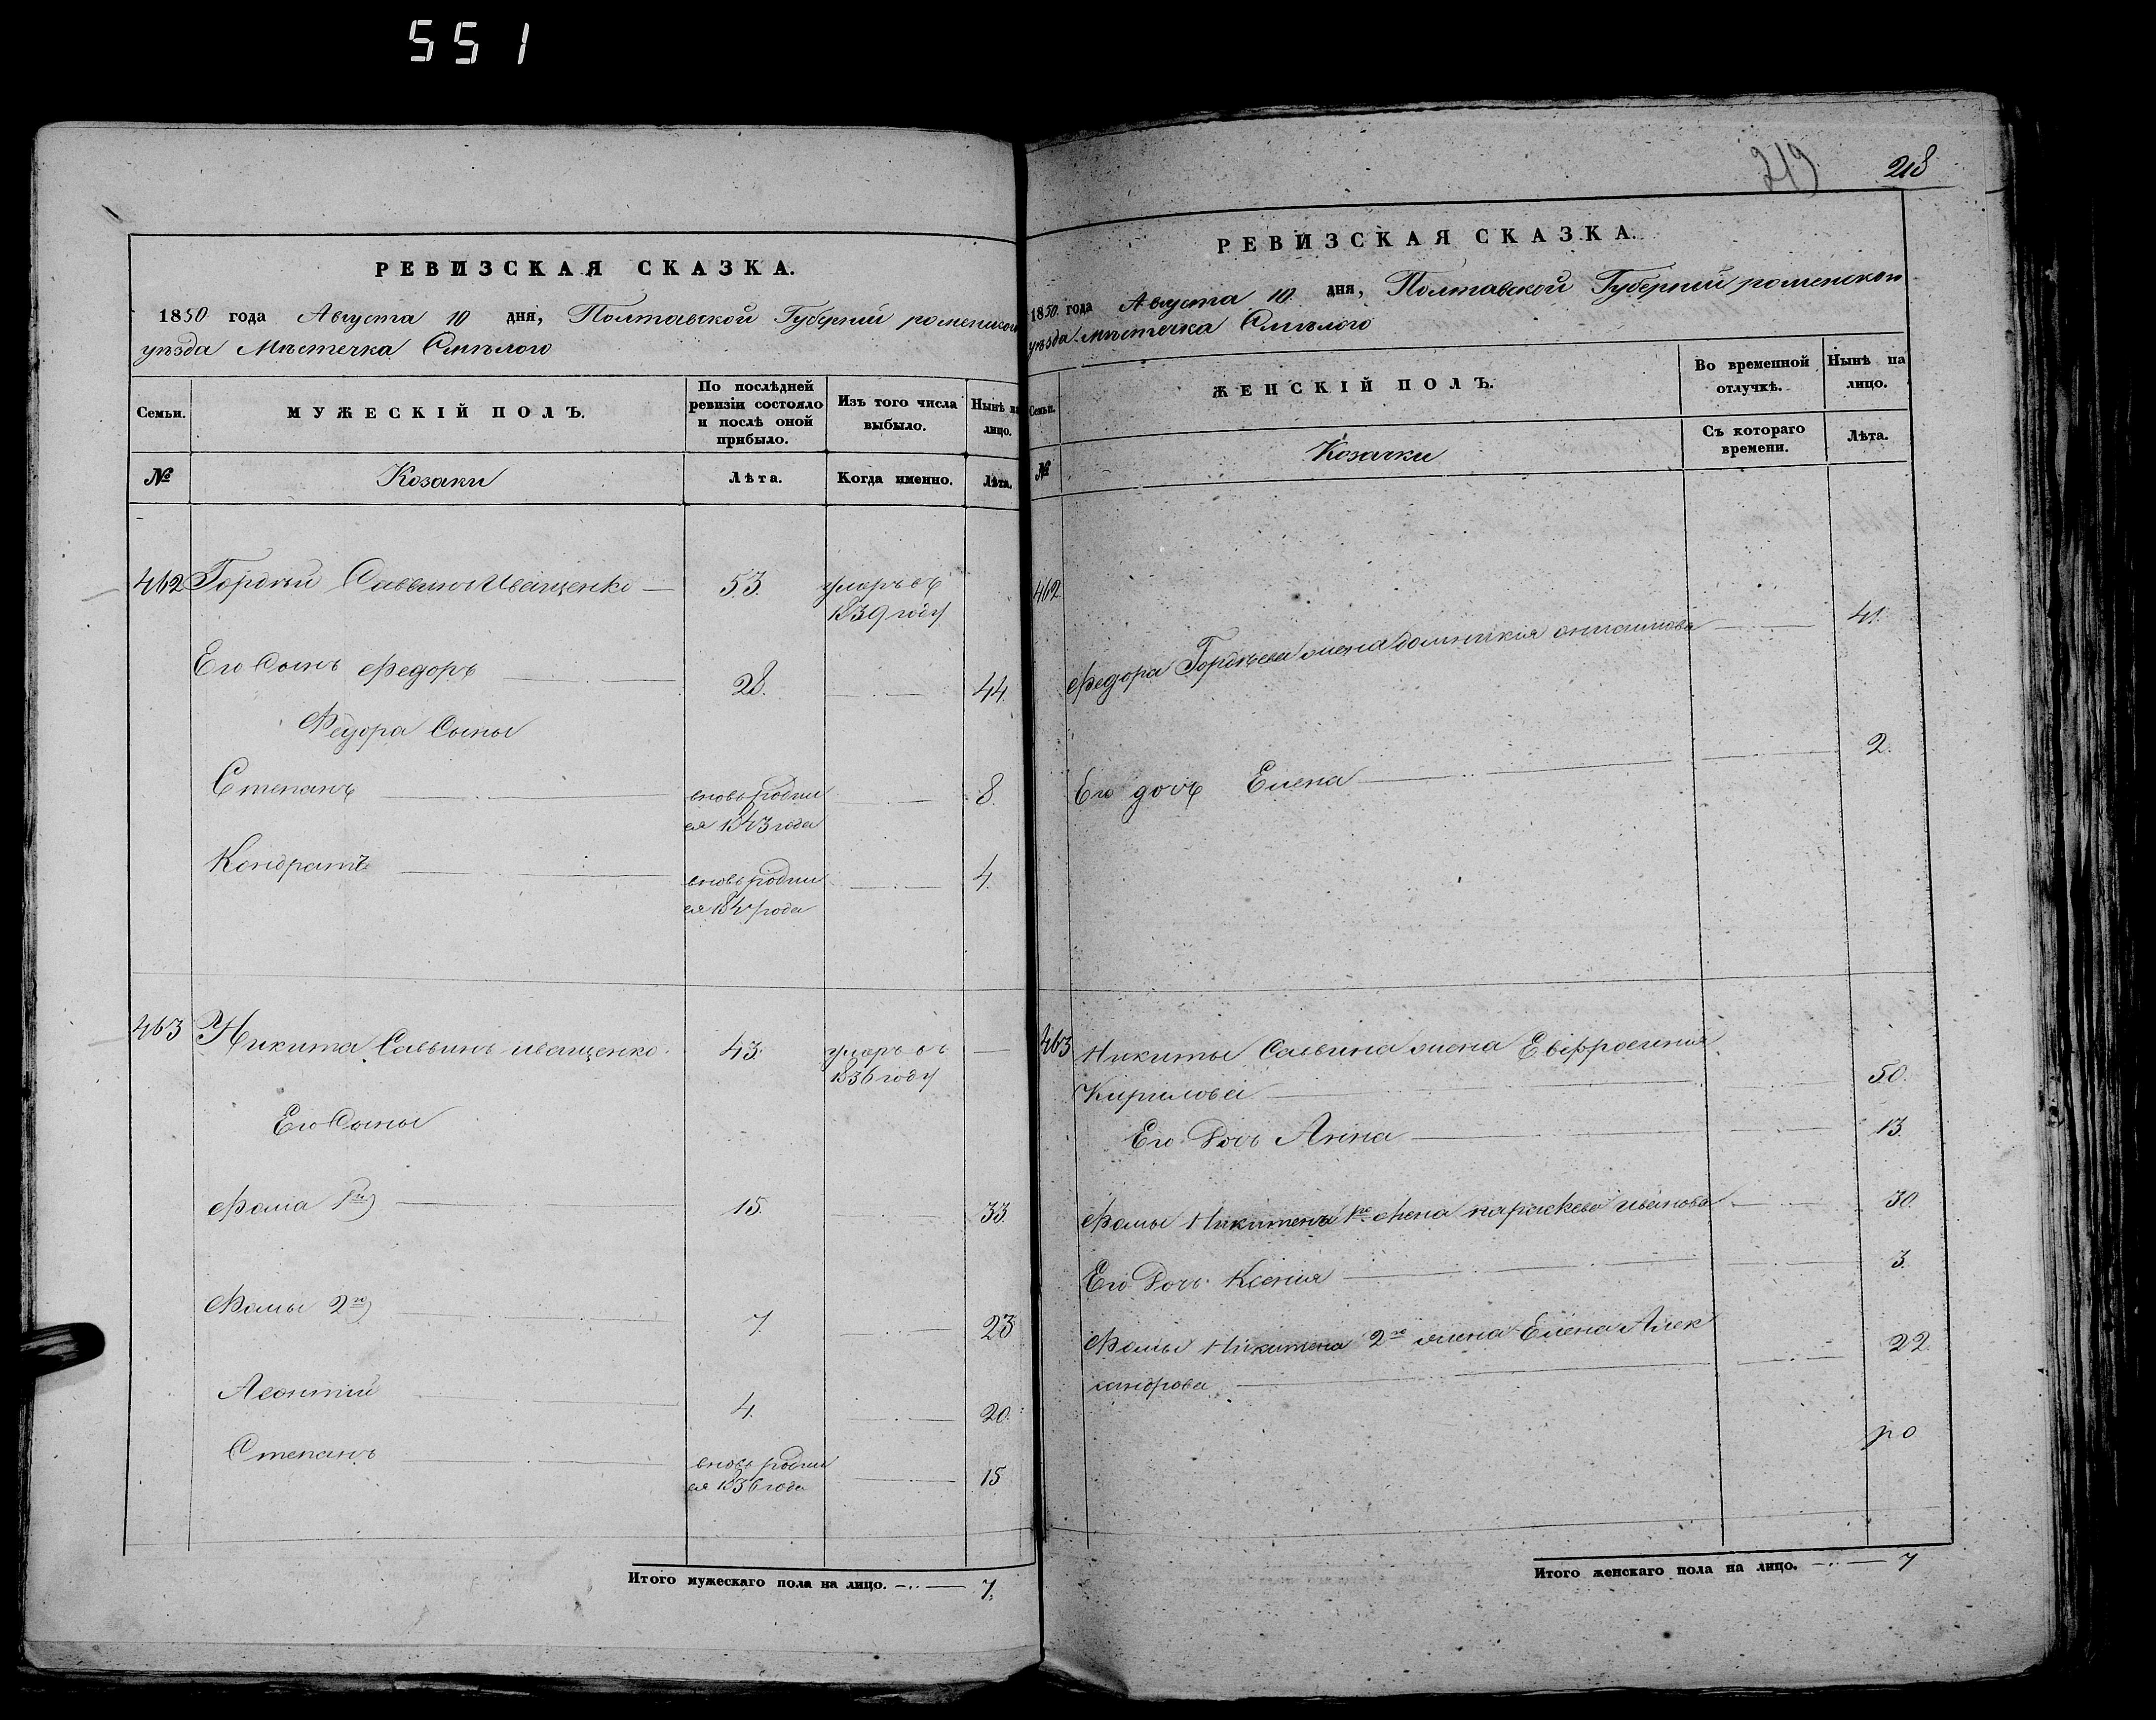 551
РЕВИЗСКАЯ СКАЗКА.
1850 года Августа 10 дня, Полтавской Губерніи роменского
уѣзда Мѣстечка Смѣлого
Семьи. МУЖЕСКІЙ ПОЛЪ. По послѣдней ревизіи состояло и послѣ оной прибыло. Изъ того числа выбыло. Нынѣ на лицо.
№ Козаки Лѣта. Когда именно. Лѣта.
462 Гордѣй Саввинъ Иващенко 53. умеръ въ
1839 году
Его Сынъ Федоръ 28. 44.
Федора Сыны
Степанъ вновь родил 8.
ся 1843 года
Кондратъ вновь родил 4.
ся 1847 года
463 Никита Саввинъ иващенко 43. умеръ въ
1836 году
Его Сыны
Фома 1й 15. 33.
Фомы 2го 7. 23
Леонтий 4. 20.
Степанъ вновь родил 15
ся 1836 года
Итого мужескаго пола на лицо. 7.
219 218
РЕВИЗСКАЯ СКАЗКА.
1850 года Августа 10 дня, Полтавской Губерніи роменского
уѣзда Мѣстечка Смѣлого
Семьи. ЖЕНСКІЙ ПОЛЪ. Во временной отлучкѣ. Нынѣ на лицо.
№ Козачки Съ котораго времени. Лѣта.
462
Федора Гордѣева жена домникия 41.
Его дочь Елена 2.
463 Никиты Саввина жена Евфросиния
Кирилова 50.
Его Дочь Анна 13.
Фомы Никитена 1го жена параскева иванова 30.
Его Дочь Ксения 3.
Фомы Никитена 2го жена Елена Алек
сандрова 22.
Итого женскаго пола на лицо. 7